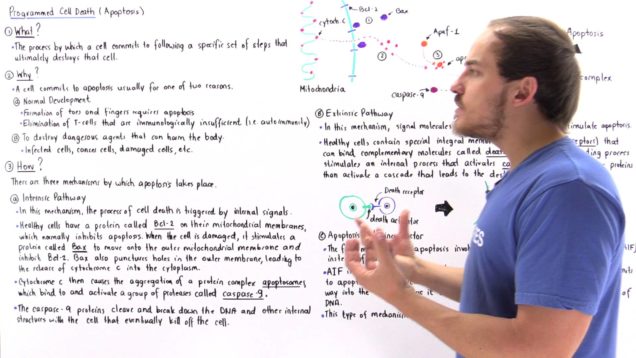 Programmed Cell Death (Apoptosis)
① What?
• The process by which a cell commits to following a specific set of steps that
ultimately destroys that cell.
② Why?
• A cell commits to apoptosis usually for one of two reasons.
ⓐ Normal Development
• Formation of toes and fingers requires apoptosis
• Elimination of T-cells that are immunologically insufficient (i.e. autoimmunity)
ⓑ To destroy dangerous agents that can harm the body.
• Infected cells, cancer cells, damaged cells, etc.
③ How?
There are three mechanisms by which apoptosis takes place.
ⓐ Intrinsic Pathway
• In this mechanism, the process of cell death is triggered by internal signals.
• Healthy cells have a protein called Bcl-2 on their mitochondrial membranes,
which normally inhibits apoptosis. When the cell is damaged, it stimulates a
protein called Bax to move onto the outer mitochondrial membrane and
inhibit Bcl-2. Bax also punctures holes in the outer membrane, leading to
the release of cytochrome c into the cytoplasm.
• Cytochrome c then causes the aggregation of a protein complex apoptosomes,
which bind to and activate a group of proteases called caspase-9.
• The caspase-9 proteins cleave and break down the DNA and other internal
structures with the cell that eventually kill off the cell.
Bcl-2
Bax
cytoch. c
①
②
③
Apaf-1
Mitochondria
caspase-9
Apoptosis
complex
ⓑ Extrinsic Pathway
• In this mechanism, signal molecules
stimulate apoptosis.
• Healthy cells contain special integral
can bind complementary molecules called
binding process
stimulates an internal process that activates
proteins
than activate a cascade that leads to the
Death receptor
death activator
ⓒ Apoptosis
factor
• The
apoptosis
instead
• AIF is
to apoptosis
way into the
it
DNA.
• This type of mechanism